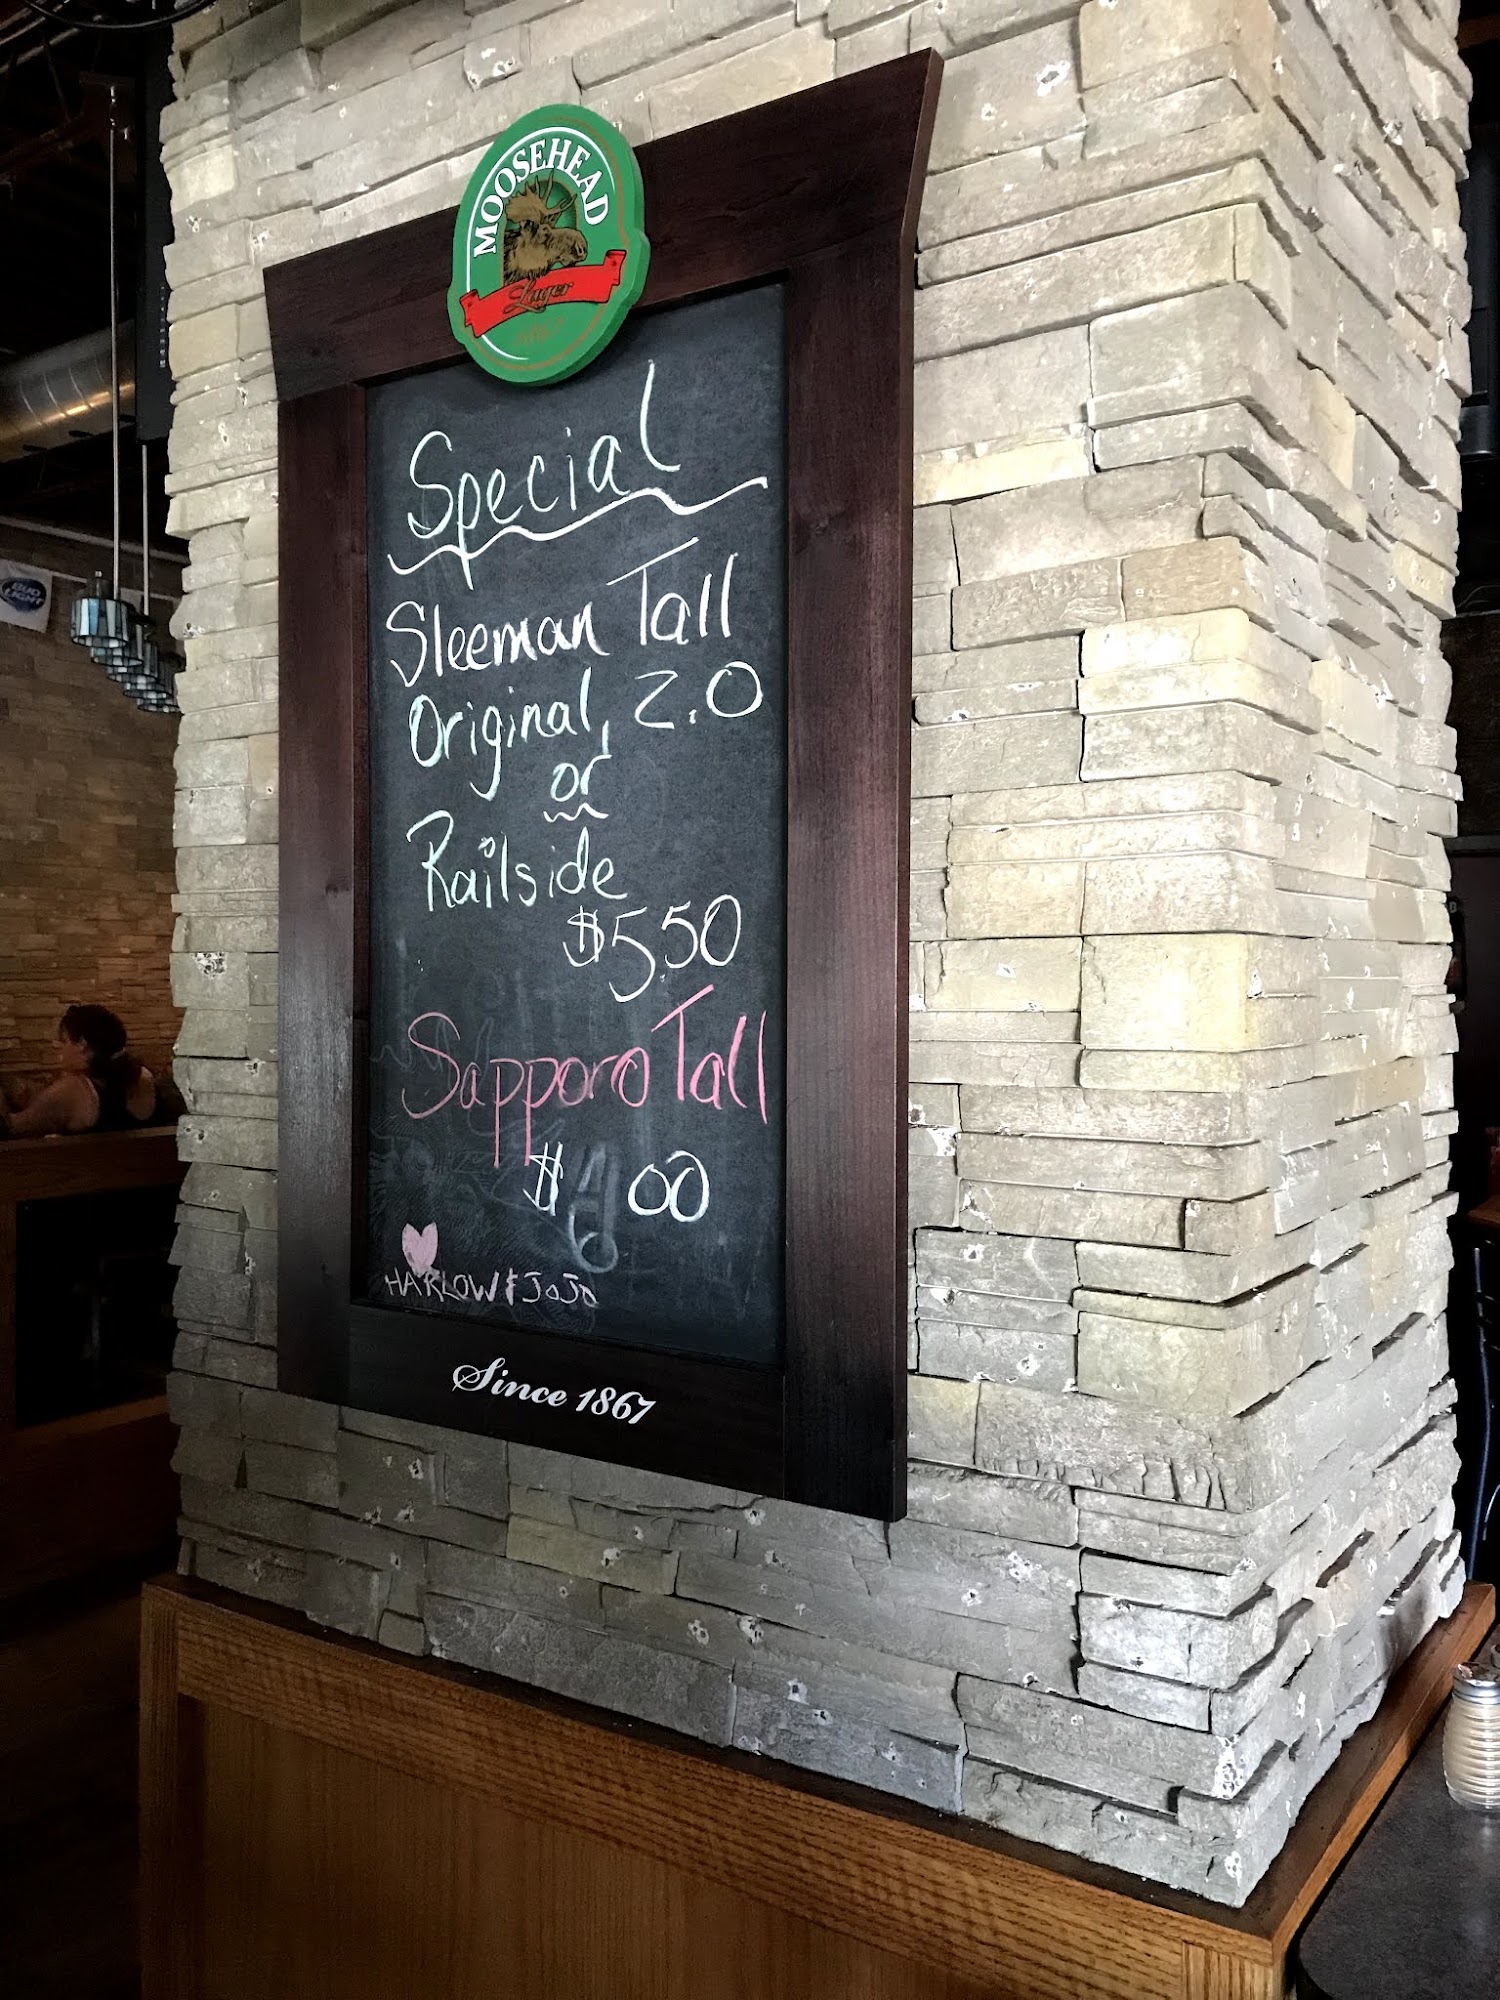 MOOSEHEAD
Lager
Special
Sleeman Tall
Original, 2.0
or
Railside
$5.50
Sapporo Tall
$ 00
HARLOW & JoJo
Since 1867
BUD
LIGHT